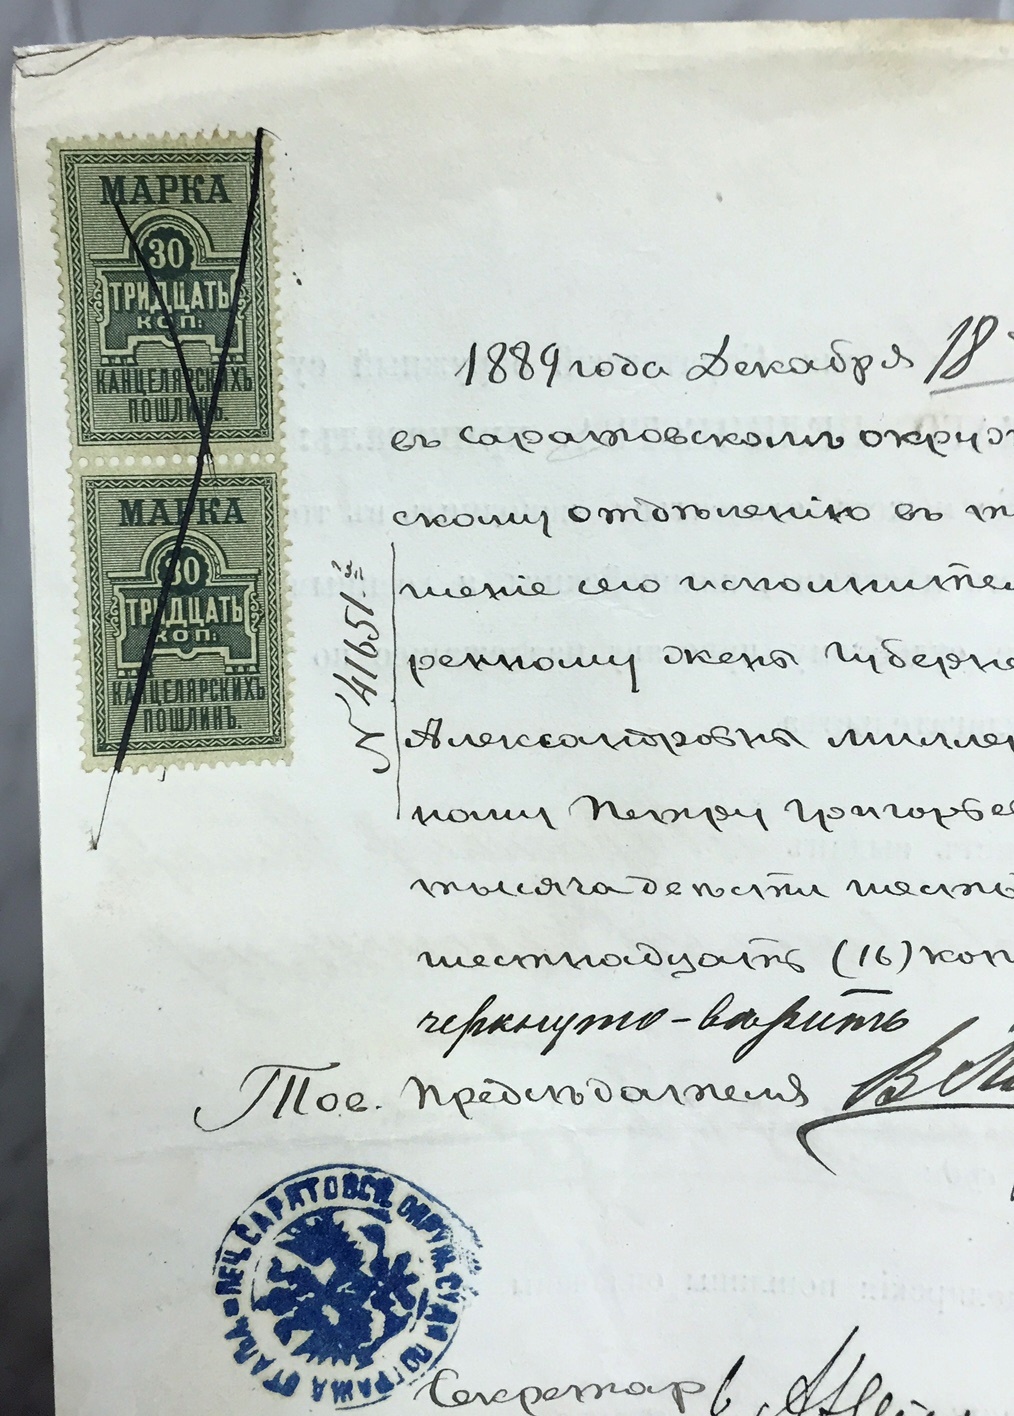 МАРКА
30
ТРИДЦАТЬ
КОП:
КАНЦЕЛЯРСКИХЪ
ПОШЛИНЪ.
МАРКА
30
ТРИДЦАТЬ
КОП:
КАНЦЕЛЯРСКИХЪ
ПОШЛИНЪ.
№ 41651
1889 года Декабря 18
въ Саратовскомъ окруж
скому отдѣленію въ
шеніе сего исполнител
женѣ Губерн
Александровнѣ Миллер
ному Петру Григорьев
тысяча двѣсти шесть
шестнадцать (16) коп
черкнуто-
Тов. Предсѣдателя
ПЕЧ. САРАТОВСК. ОКРУЖ. СУДА ПО ГРАЖД. ОТДѢЛ.
Секретарь